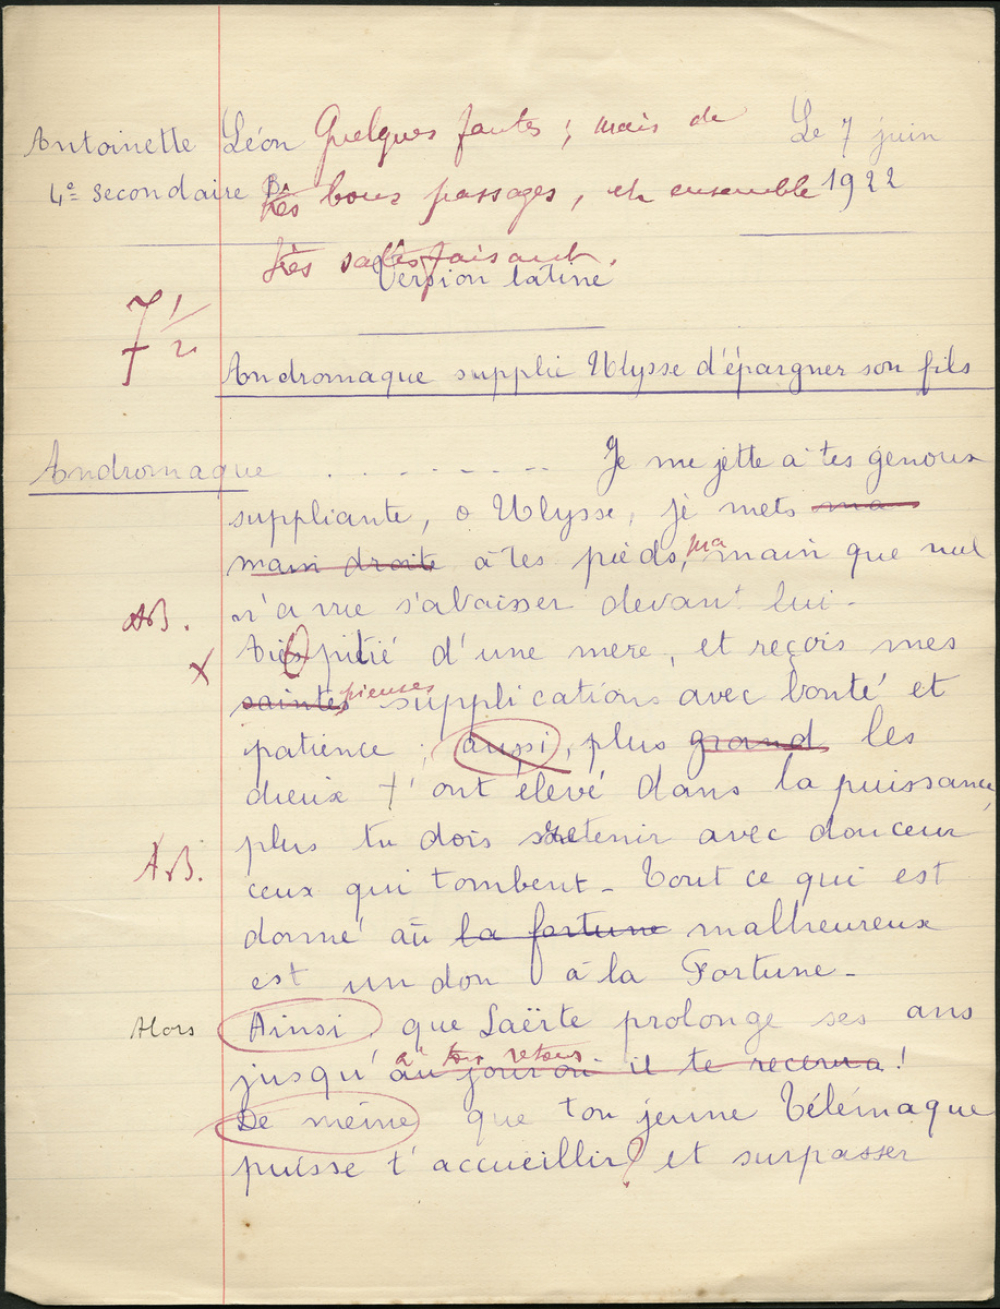 Antoinette Léon Quelques fautes ; mais de Le 7 juin
4e secondaire très bons passages, et ensemble 1922
très satisfaisant.
Version latine
7 1/2
Andromaque supplie Ulysse d'épargner son fils
Andromaque . . - . - - - -- Je me jette à tes genoux
suppliante, o Ulysse, je mets ma
main droite à tes pieds, ma main que nul
n'a vue s'abaisser devant lui -
AB.
Aies pitié d'une mere, et reçois mes
x
saintes pieuses supplications avec bonté et
patience ; aussi, plus grand les
dieux t'ont élevé dans la puissance,
plus tu dois retenir avec douceur
AB.
ceux qui tombent - Tout ce qui est
donné au la fortune malheureux
est un don à la Fortune -
Alors Ainsi que Laërte prolonge ses ans
jusqu'au jour où il te recevra !
à ton retour
De même que ton jeune Télémaque
puisse t'accueillir ? et surpasser